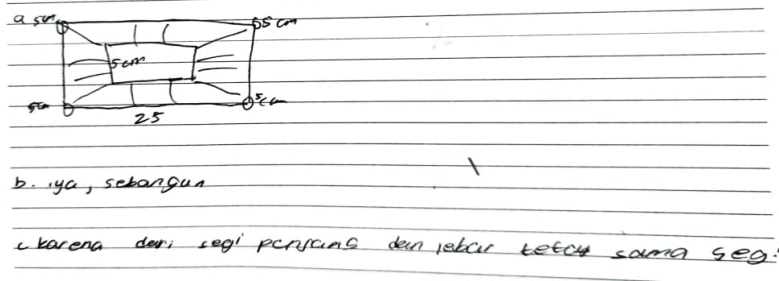 a 5cm 5 cm
5cm
5cm 5cm
25
b. iya, sebangun
c karena dari segi panjang dan lebar tetap sama segi